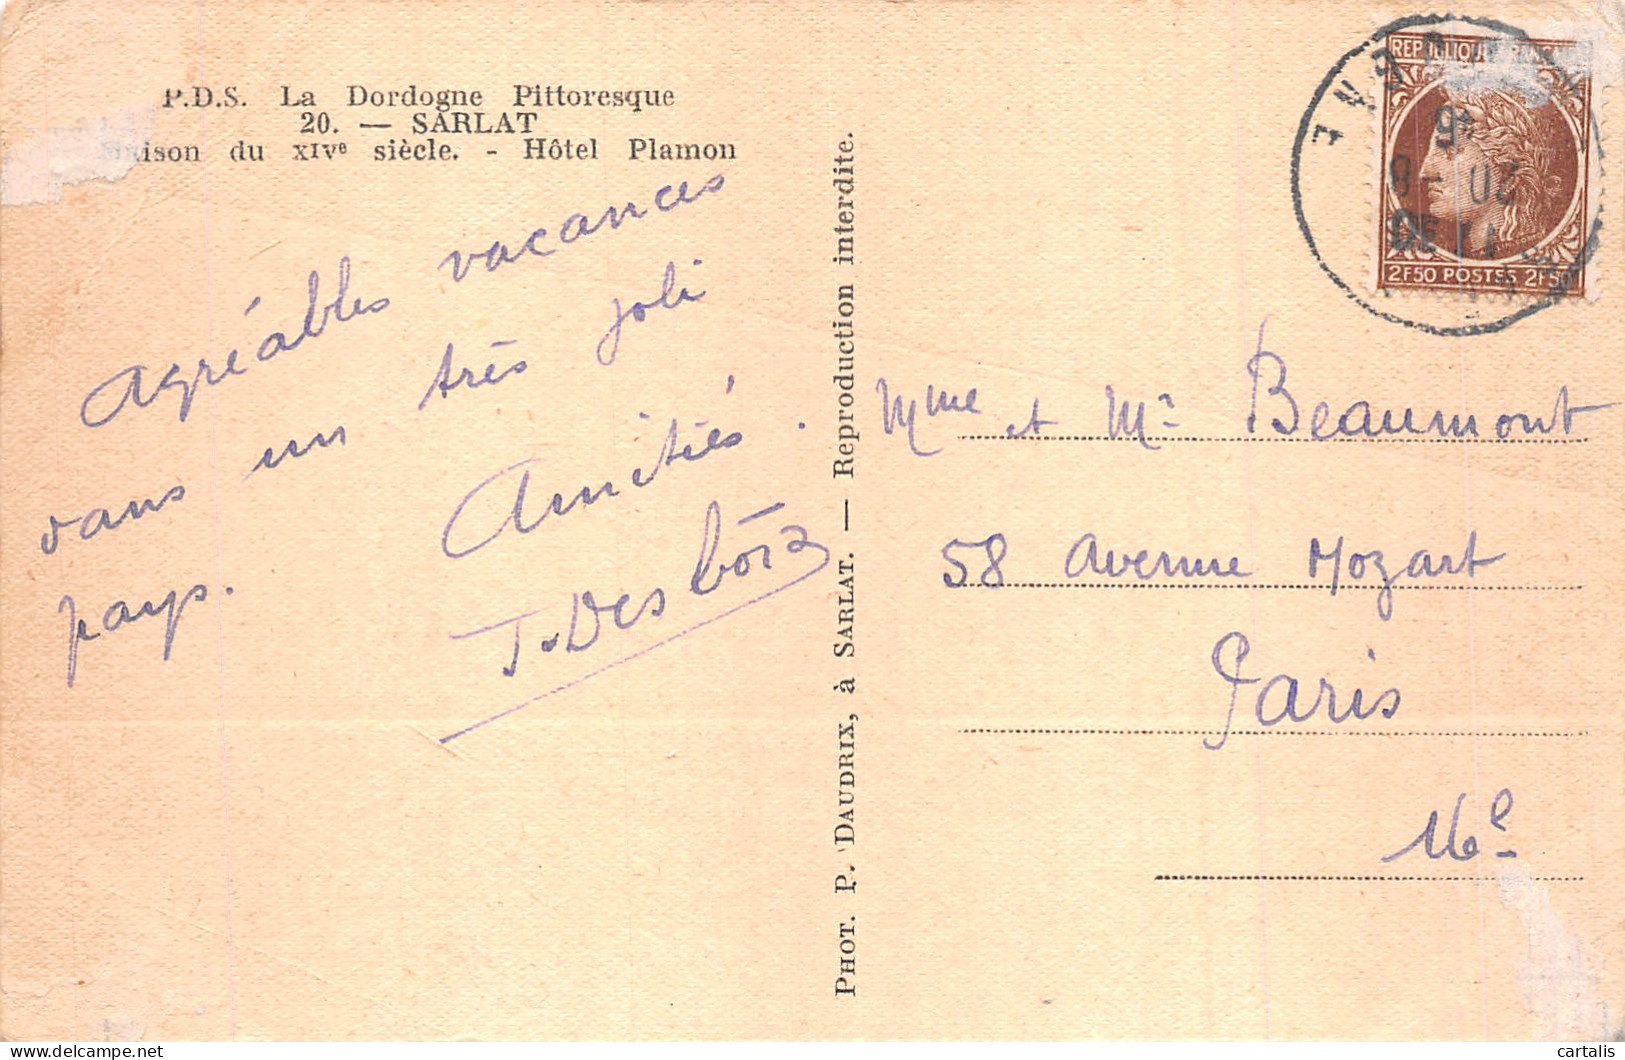 P.D.S. La Dordogne Pittoresque
20. — SARLAT
Maison du XIVᵉ siècle. - Hôtel Plamon
Agréables vacances
dans un très joli
pays. Amitiés.
J. Desbois
PHOT. P. DAUDRIX, à SARLAT. — Reproduction interdite.
2F50 POSTES 2F50
Mme et Mr Beaumont
58 avenue Mozart
Paris
16e
cartalis